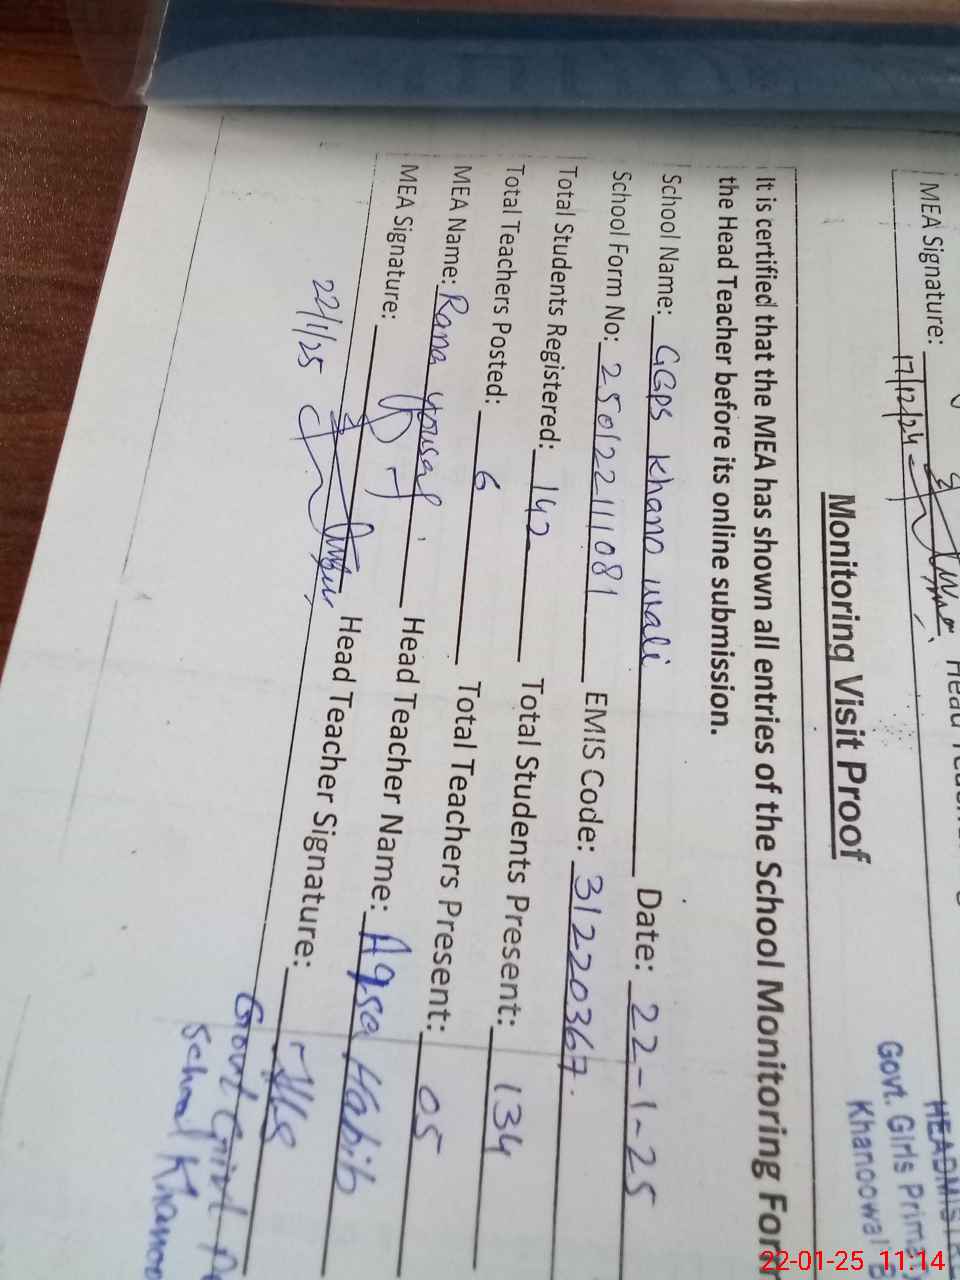 MEA Signature:
17/12/24
HEADMIS
Govt. Girls Prima
Khanoowal
Monitoring Visit Proof
It is certified that the MEA has shown all entries of the School Monitoring Form
the Head Teacher before its online submission.
School Name: GGPS Khano Wali Date: 22-1-25
School Form No: 250122111081 EMIS Code: 31220367.
Total Students Registered: 142 Total Students Present: 134
Total Teachers Posted: 6 Total Teachers Present: 05
MEA Name: Rana Yousaf Head Teacher Name: Aqsa Habib
MEA Signature: Head Teacher Signature:
22/1/25
School Khanoo
22-01-25 11:14